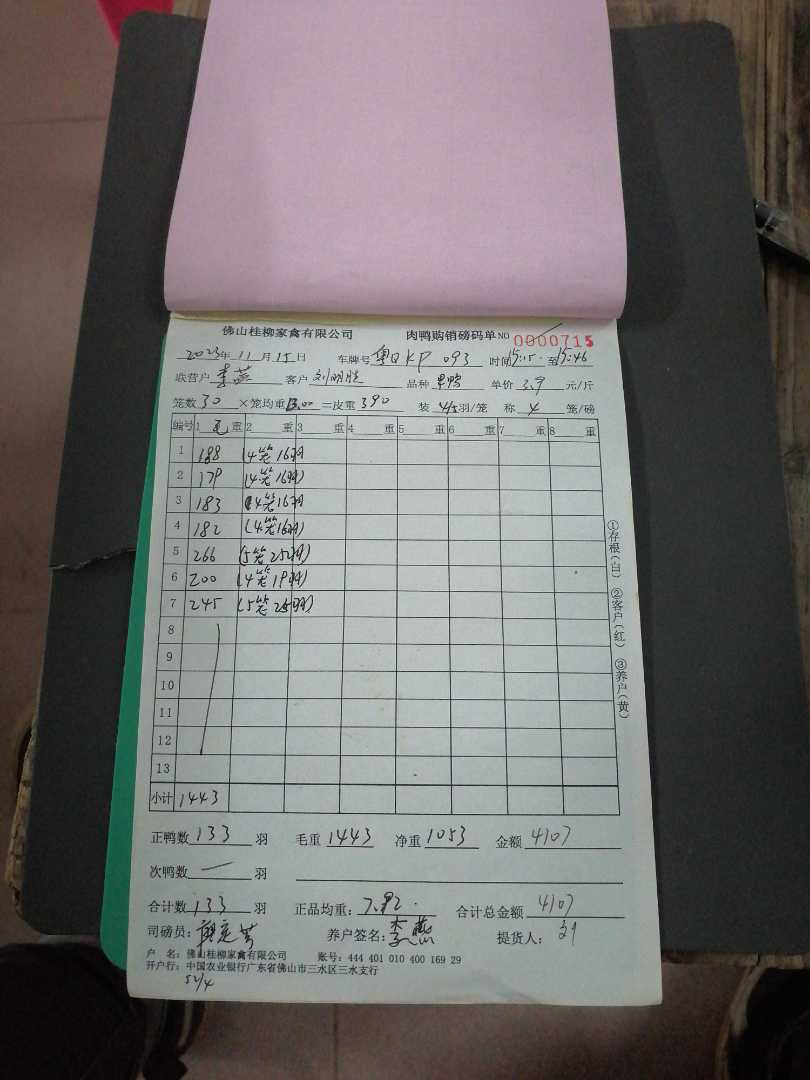 佛山桂柳家禽有限公司 肉鸭购销磅码单 NO 0000715
2023年11月15日 车牌号 粤QKP093 时间15:15至15:46
联营户 李燕 客户 刘明 品种 单价 3.9 元/斤
笼数30×笼均重13.00=皮重390 装4/5羽/笼 称4笼/磅
编号 1 毛重 2 重 3 重 4 重 5 重 6 重 7 重 8 重
1 188 (4笼16羽)
2 179 (4笼16羽)
3 183 (4笼16羽)
4 182 (4笼16羽)
5 266 (5笼25羽)
6 200 (4笼19羽)
7 245 (5笼25羽)
8
9
10
11
12
13
小计 1443
正鸭数 133 羽 毛重 1443 净重 1053 金额 4107
次鸭数 — 羽
合计数 133 羽 正品均重: 7.92 合计总金额 4107
司磅员: 养户签名: 李燕 提货人: 刘
户 名: 佛山桂柳家禽有限公司 账号: 444 401 010 400 169 29
开户行: 中国农业银行广东省佛山市三水区三水支行
①存根(白) ②客户(红) ③养户(黄)